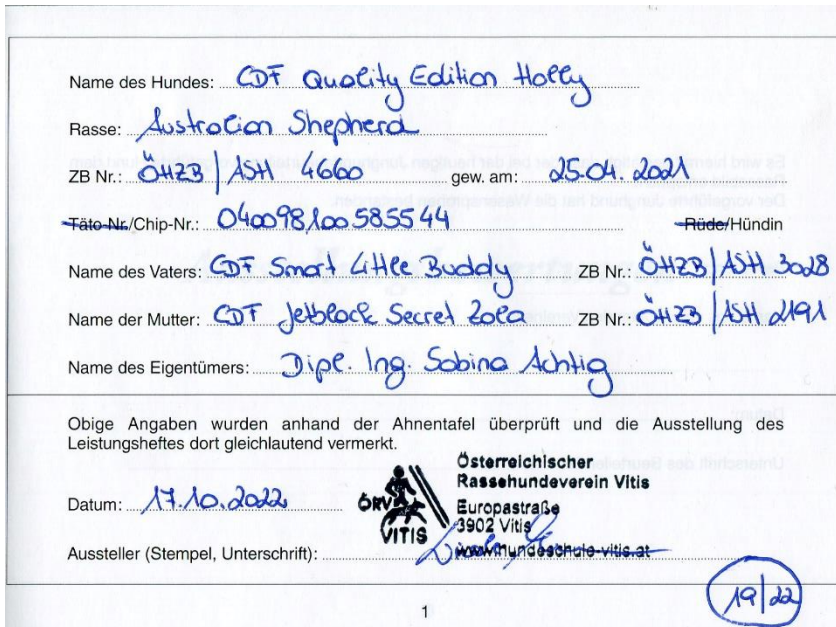 Name des Hundes: CDF Quality Edition Holly
Rasse: Australian Shepherd
ZB Nr.: ÖHZB / ASH 4660 gew. am: 25.04.2021
Täto-Nr./Chip-Nr.: 04009810058554 4 Rüde/Hündin
Name des Vaters: CDF Smart Little Buddy ZB Nr.: ÖHZB / ASH 3028
Name der Mutter: CDF Jetblack Secret Zoea ZB Nr.: ÖHZB / ASH 2191
Name des Eigentümers: Dipl. Ing. Sabina Achtig
Obige Angaben wurden anhand der Ahnentafel überprüft und die Ausstellung des
Leistungsheftes dort gleichlautend vermerkt.
Österreichischer
Rassehundeverein Vitis
Datum: 17.10.2022
ÖRV
VITIS
Europastraße
3902 Vitis
www.hundeschule-vitis.at
Aussteller (Stempel, Unterschrift):
1
19/22